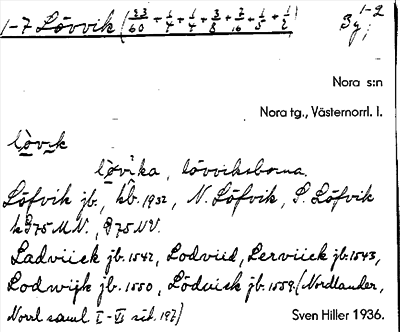 1-7 Lövvik (33/60 + 1/4 + 1/4 + 3/8 + 7/16 + 1/5 + 1/2) By, 1-2
Nora s:n
Nora tg., Västernorrl. l.
lòvìk
lòvika, lövviksborna.
Löfvik jb., kb. 1932, N. Löfvik, S. Löfvik
75 M.N., 75 NV.
Ladviick jb. 1542, Lodviid, Lerviick jb. 1543,
Lodwijk jb. 1550, Lödwick jb. 1559. (Nordlander,
Norrl saml I-VI sid. 197)
Sven Hiller 1936.